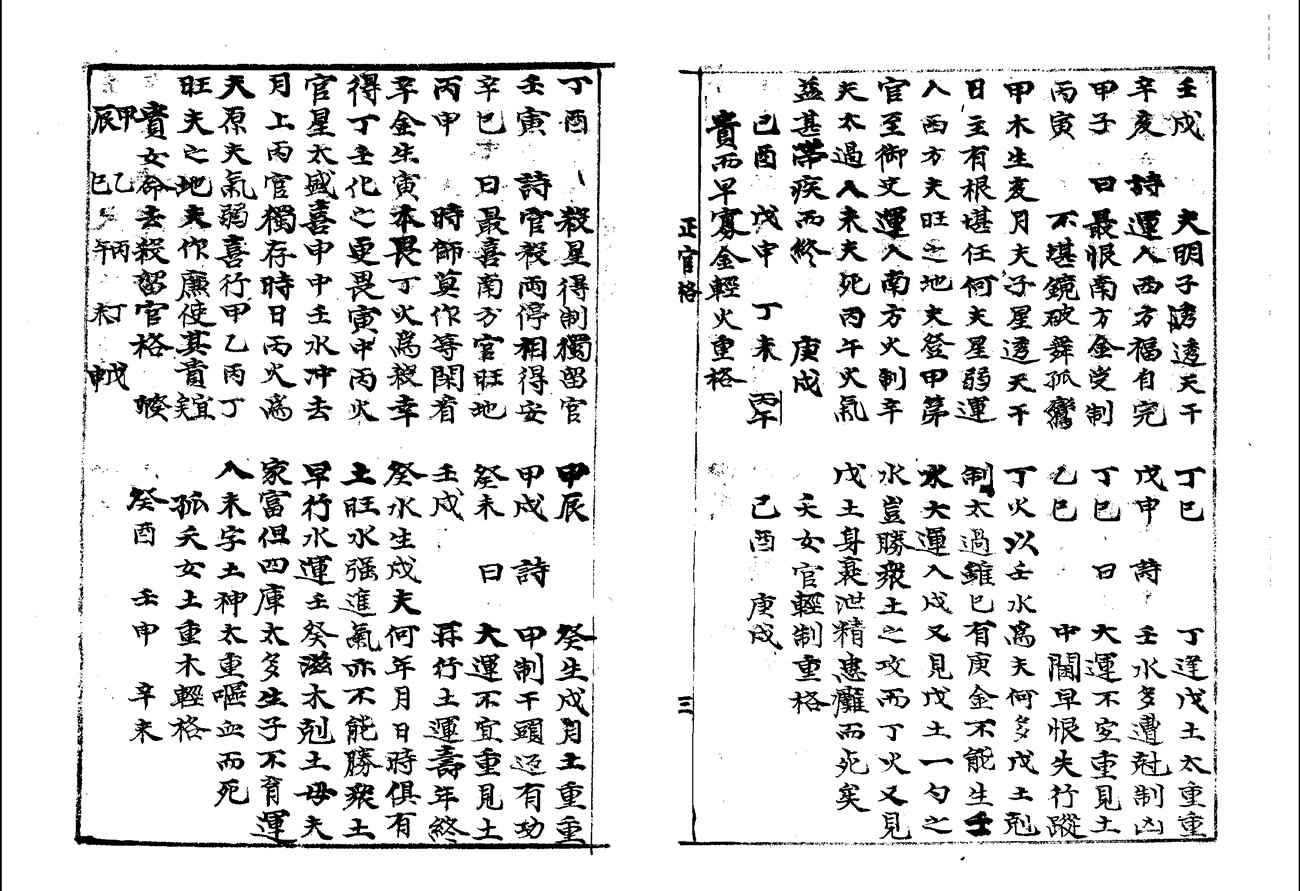 壬戌 夫明子透透天干
辛亥 詩 運入西方福自完
甲子 曰 最恨南方金受制
丙寅 不堪鏡破舞孤鸞
甲木生亥月夫子星透天干
日主有根堪任何夫星弱運
入西方夫旺之地夫登甲第
官至御史運入南方火制辛
夫太過入未夫死丙午火氣
益甚帶疾而終 庚戌
己酉 戊申 丁未 丙午
貴而早寡金輕火重格
丁巳 丁逢戊土太重重
戊申 詩 壬水多遭尅制凶
丁巳 曰 大運不宜重見土
乙巳 中閫早恨失行蹤
丁火以壬水為夫何多戊土剋
制太過雖巳有庚金不能生壬
水大運入戌又見戊土一勺之
水豈勝衆土之攻而丁火又見
戊土身衰泄精患癱而死矣
夭女官輕制重格
己酉 庚戌
正官格
三
丁酉 殺星得制獨留官
壬寅 詩 官殺兩停相得安
辛巳 曰 最喜南方官旺地
丙申 時師莫作等閑看
辛金生寅本畏丁火為殺幸
得丁壬化之更畏寅中丙火
官星太盛喜申中壬水冲去
月上丙官獨存時日丙火為
夫原夫氣弱喜行甲乙丙丁
旺夫之地夫作廉使其貴宜矣
貴女命去殺留官格 癸卯
甲辰 乙巳 丙午 丁未 戊申
甲辰 癸生戌月土重重
甲戌 詩 甲制干頭逅有功
癸未 曰 大運不宜重見土
壬戌 再行土運壽年終
癸水生戌夫何年月日時俱有
土旺水强進氣亦不能勝衆土
早行水運壬癸滋木剋土母夫
家富但四庫太多生子不育運
入未字土神太重嘔血而死
孤夭女土重木輕格
癸酉 壬申 辛未